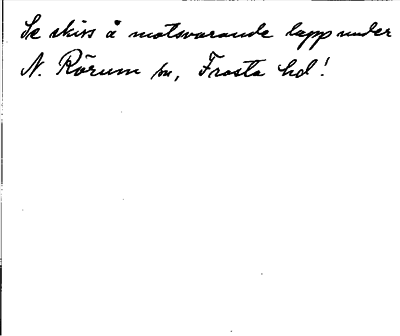 Se skiss å motsvarande lapp under
N. Rörum sn, Frosta hd!